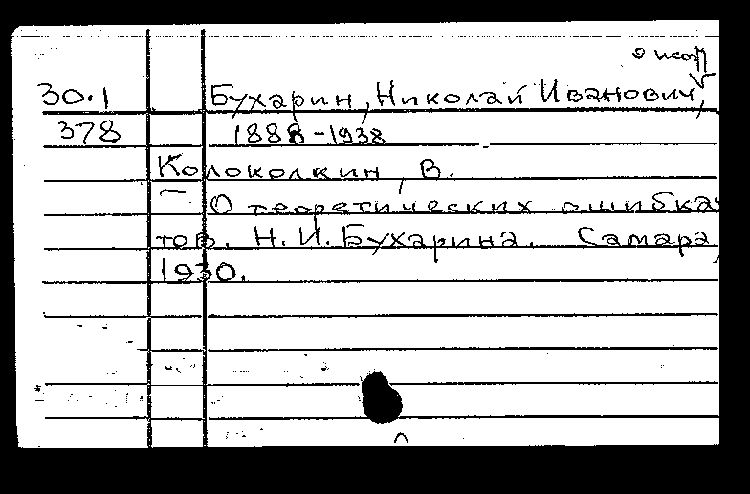 30.1 Бухарин, Николай Иванович,
378 1888-1938
Колоколкин, В.
О теоретических ошибка
тов. Н.И.Бухарина. Самара,
1930.